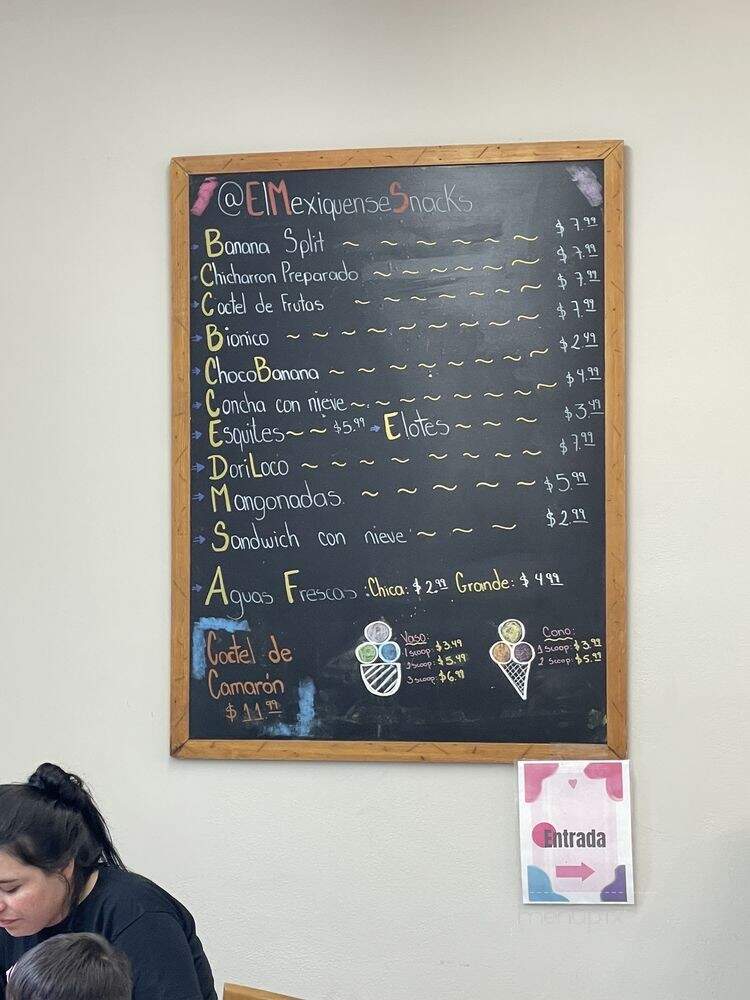 @ElMexiquenseSnacks
Banana Split ~ ~ ~ ~ ~ ~ $7.99
Chicharron Preparado ~ ~ ~ ~ ~ ~ $7.99
Coctel de Frutas ~ ~ ~ ~ ~ ~ $7.99
Bionico ~ ~ ~ ~ ~ ~ ~ ~ $7.99
ChocoBanana ~ ~ ~ ~ ~ ~ ~ ~ $2.49
Concha con nieve ~ ~ ~ ~ ~ ~ ~ ~ $4.99
Esquites ~ ~ $5.99 Elotes ~ ~ ~ ~ $3.49
DoriLoco ~ ~ ~ ~ ~ ~ ~ ~ $7.99
Mangonadas ~ ~ ~ ~ ~ ~ $5.99
Sandwich con nieve ~ ~ ~ ~ $2.99
Aguas Frescas: Chica: $2.99 Grande: $4.99
Coctel de
Camarón
$11.99
Vaso:
1 scoop: $3.49
2 scoop: $5.49
3 scoop: $6.99
Cono:
1 scoop: $3.99
2 scoop: $5.99
Entrada
menupix